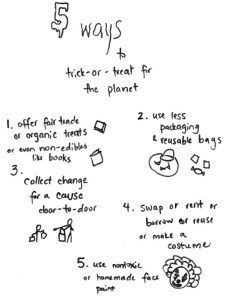 5 ways
to
trick-or-treat for
the planet
1. offer fair trade
or organic treats
or even non-edibles
like books
2. use less
packaging
& reusable bags
3.
Collect change
for a cause
door-to-door
4. swap or rent or
borrow or reuse
or make a
costume
5. use nontoxic
or homemade face
paint